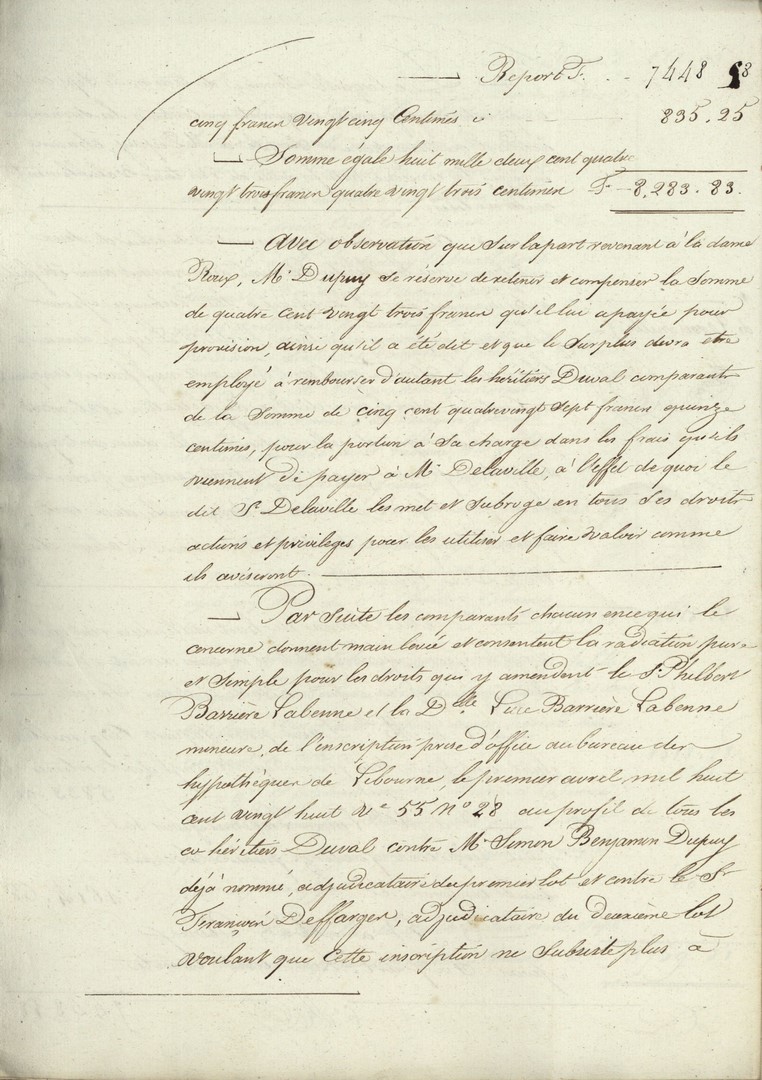 Report F. 7448 58
cinq francs vingt cinq Centimes ci 835.25
Somme égale huit mille deux cent quatre
vingt trois francs quatre vingt trois centimes F. 8,283.83.
Avec observation que sur la part revenant à la dame
Roux, Mr Dupuy se réserve de retenir et compenser la Somme
de quatre Cent vingt trois francs qu'il lui a payée pour
provision, ainsi qu'il a été dit et que le Surplus devra être
employé à rembourser d'autant les héritiers Duval comparants
de la Somme de Cinq cent quatrevingt Sept francs quinze
centimes, pour la portion à Sa charge dans les frais qu'ils
viennent de payer à Mr Delaville, à l'effet de quoi le
dit Sr Delaville les met et Subroge en tous Ses droits
actions et privilèges pour les utiliser et faire valoir comme
ils aviseront.
Par Suite les comparants chacun en ce qui le
concerne donnent main levée et consentent la radiation pure
et Simple pour les droits que y amendent le Sr Philbert
Barrière Labenne et la Dlle Barrière Labenne
mineure, de l'inscription prise d'office au bureau des
hypothèques de Libourne, le premier avril mil huit
cent vingt huit Ve 55 No 28 au profit de tous les
co héritiers Duval contre Mr Simon Benjamin Dupuy
déjà nommé, adjudicataire du premier lot et contre le Sr
François Deffarges, adjudicataire du deuxième lot
voulant que Cette inscription ne Subsiste plus à